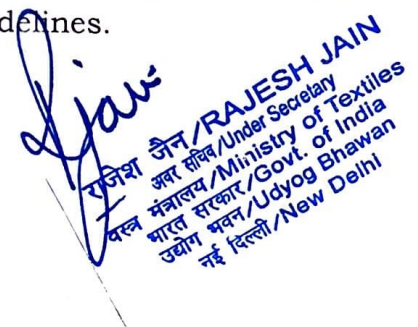 delines.
Rjain
राजेश जैन/RAJESH JAIN
अवर सचिव/Under Secretary
वस्त्र मंत्रालय/Ministry of Textiles
भारत सरकार/Govt. of India
उद्योग भवन/Udyog Bhawan
नई दिल्ली/New Delhi